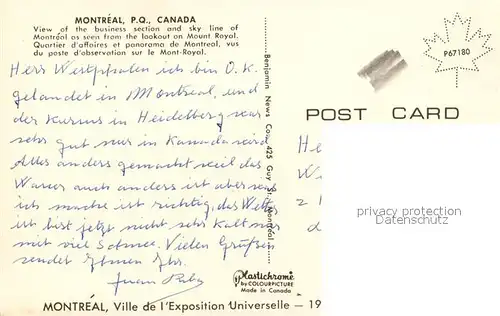 MONTRÉAL, P.Q., CANADA
View of the business section and sky line of
Montreal as seen from the lookout on Mount Royal.
Quartier d'affaires et panorama de Montreal, vus
du poste d'observation sur le Mont-Royal.
Herr Westpfalen ich bin O.K.
gelandet in Montreal, und
der Kursus in Heidelberg war
sehr gut nur in Kanada wird
Alles anders gemacht weil das
anders ist aber
ich mache ist richtig, das Wetter
ist bist jetzt nicht sehr kalt nur
mit viel Schnee. Vielen Grüßen
sendet Ihnen Ihr.
Benjamin News Co., 425 Guy St., Montreal
P67180
POST CARD
He
W
z
d
privacy protection
Datenschutz
Plastichrome
by COLOURPICTURE
Made in Canada
MONTRÉAL, Ville de l'Exposition Universelle — 19